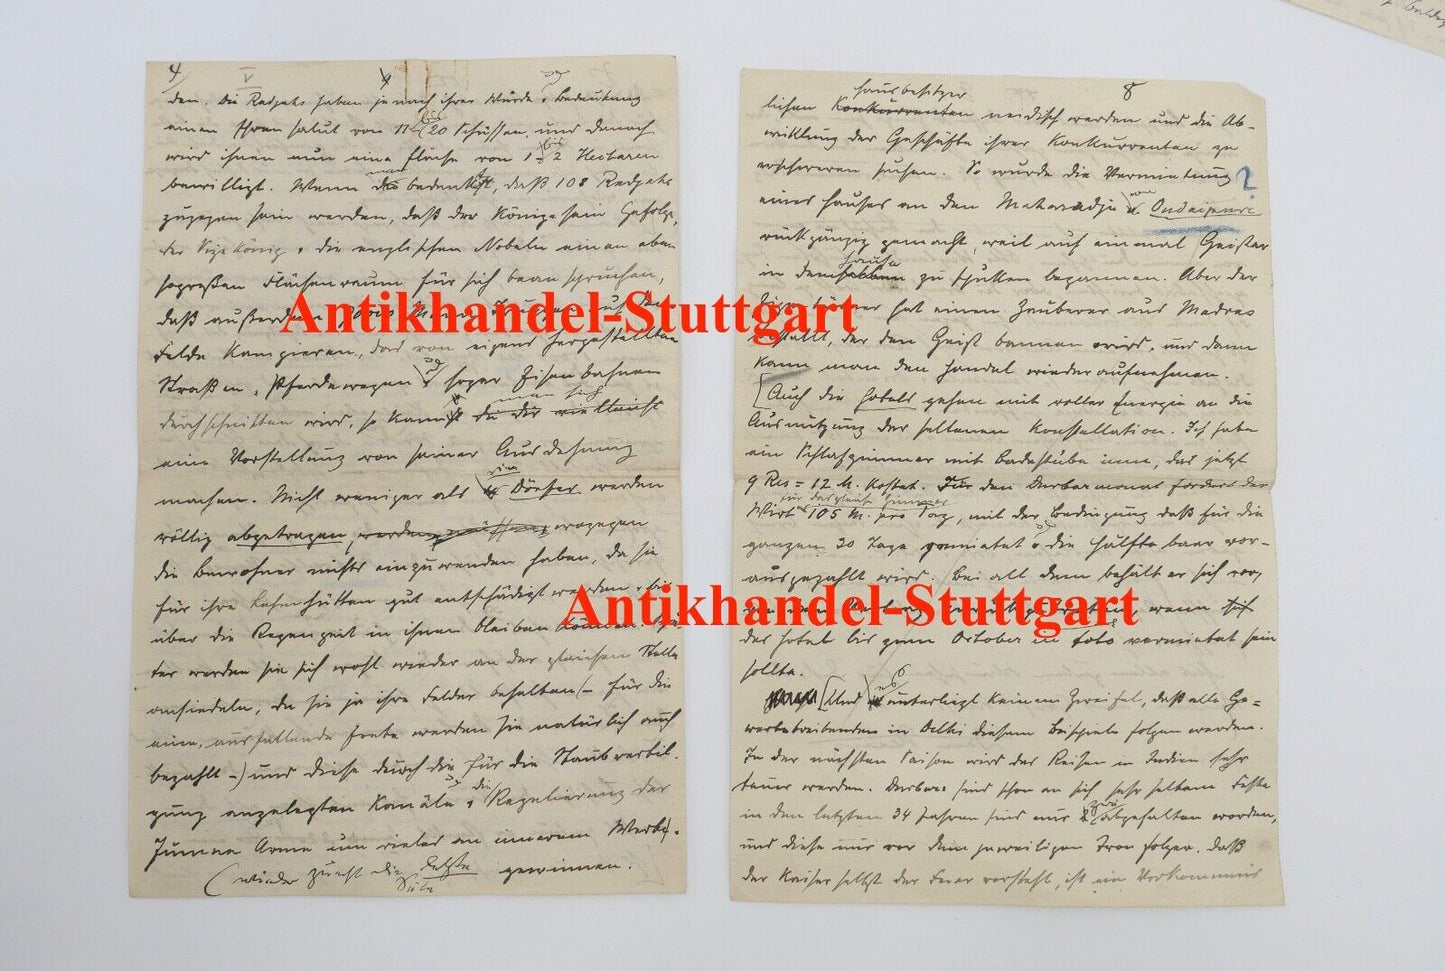 4
V
4
den. Die Radjahs haben je nach ihrer Würde u. Bedeutung
einen Ehrensalut von 11 bis 20 Schüssen, und danach
wird ihnen nun eine Fläche von 1 bis 2 Hectaren
bewilligt. Wenn man bedenkt, daß 108 Radjahs
zugegen sein werden, daß der König sein Gefolge,
der Vizekönig u. die englischen Nobeln einen eben
sogroßen Flächenraum für sich beanspruchen,
daß außerdem auf dem
Felde kampieren, das von eigens hergestellten
Straßen, Pferdewegen u. sogar Eisenbahnen
durchschnitten wird, so kann man sich die vielleicht
eine Vorstellung von seiner Ausdehnung
machen. Nicht weniger als Dörfer werden
völlig abgetragen werden müssen, wogegen
die Bewohner nichts einzuwenden haben, da sie
für ihre Lehmhütten gut entschädigt werden u. bis
über die Regenzeit in ihnen bleiben können. Spä-
ter werden sie sich wohl wieder an der gleichen Stelle
ansiedeln, da sie ja ihre Felder behalten (– für die
eine, ausfallende Ernte werden sie natürlich auch
bezahlt –) und diese durch die für die Staubvertil-
gung angelegten Kanäle u. die Regulierung der
Jumna Arme um vieles an innerem Werth
(wieder zurück die letzte Seite gewinnen.
8
hausbesitzer
lichen Konkurrenten neidisch werden und die Ab-
wicklung der Geschäfte ihrer Konkurrenten zu
erschweren suchen. So wurde die Vermietung ?
eines Hauses an den Maharadja von Oudaipure
rückgängig gemacht, weil auf einmal Geister
in dem Hause zu spuken begannen. Aber der
Eigentümer hat einen Zauberer aus Madras
bestellt, der den Geist bannen wird, und dann
kann man den Handel wiederaufnehmen.
[Auch die Hotels gehen mit voller Energie an die
Ausnützung der seltenen Konstellation. Ich habe
ein Schlafzimmer mit Badestube inne, das jetzt
9 Res = 12 M. kostet. Für den Durbarmonat fordert der
für das gleiche Zimmer
Wirt 105 M. pro Tag, mit der Bedingung daß für die
ganzen 30 Tage gemietet u. die Hälfte baar vor-
ausgezahlt wird. Bei all dem behält er sich vor,
wenn sich
das Hotel bis zum October in toto vermietet sein
sollte.
[Und es unterliegt keinem Zweifel, daß alle Ge-
werbetreibenden in Delhi diesem Beispiele folgen werden.
In der nächsten Saison wird das Reisen in Indien sehr
teuer werden. Durbars sind schon an sich sehr seltene Feste
in den letzten 34 Jahren sind nur zwei abgehalten worden,
und diese nur vor dem jeweiligen Tronfolger. Daß
der Kaiser selbst der Feier vorsteht, ist ein Vorkommnis
Antikhandel-Stuttgart
Antikhandel-Stuttgart